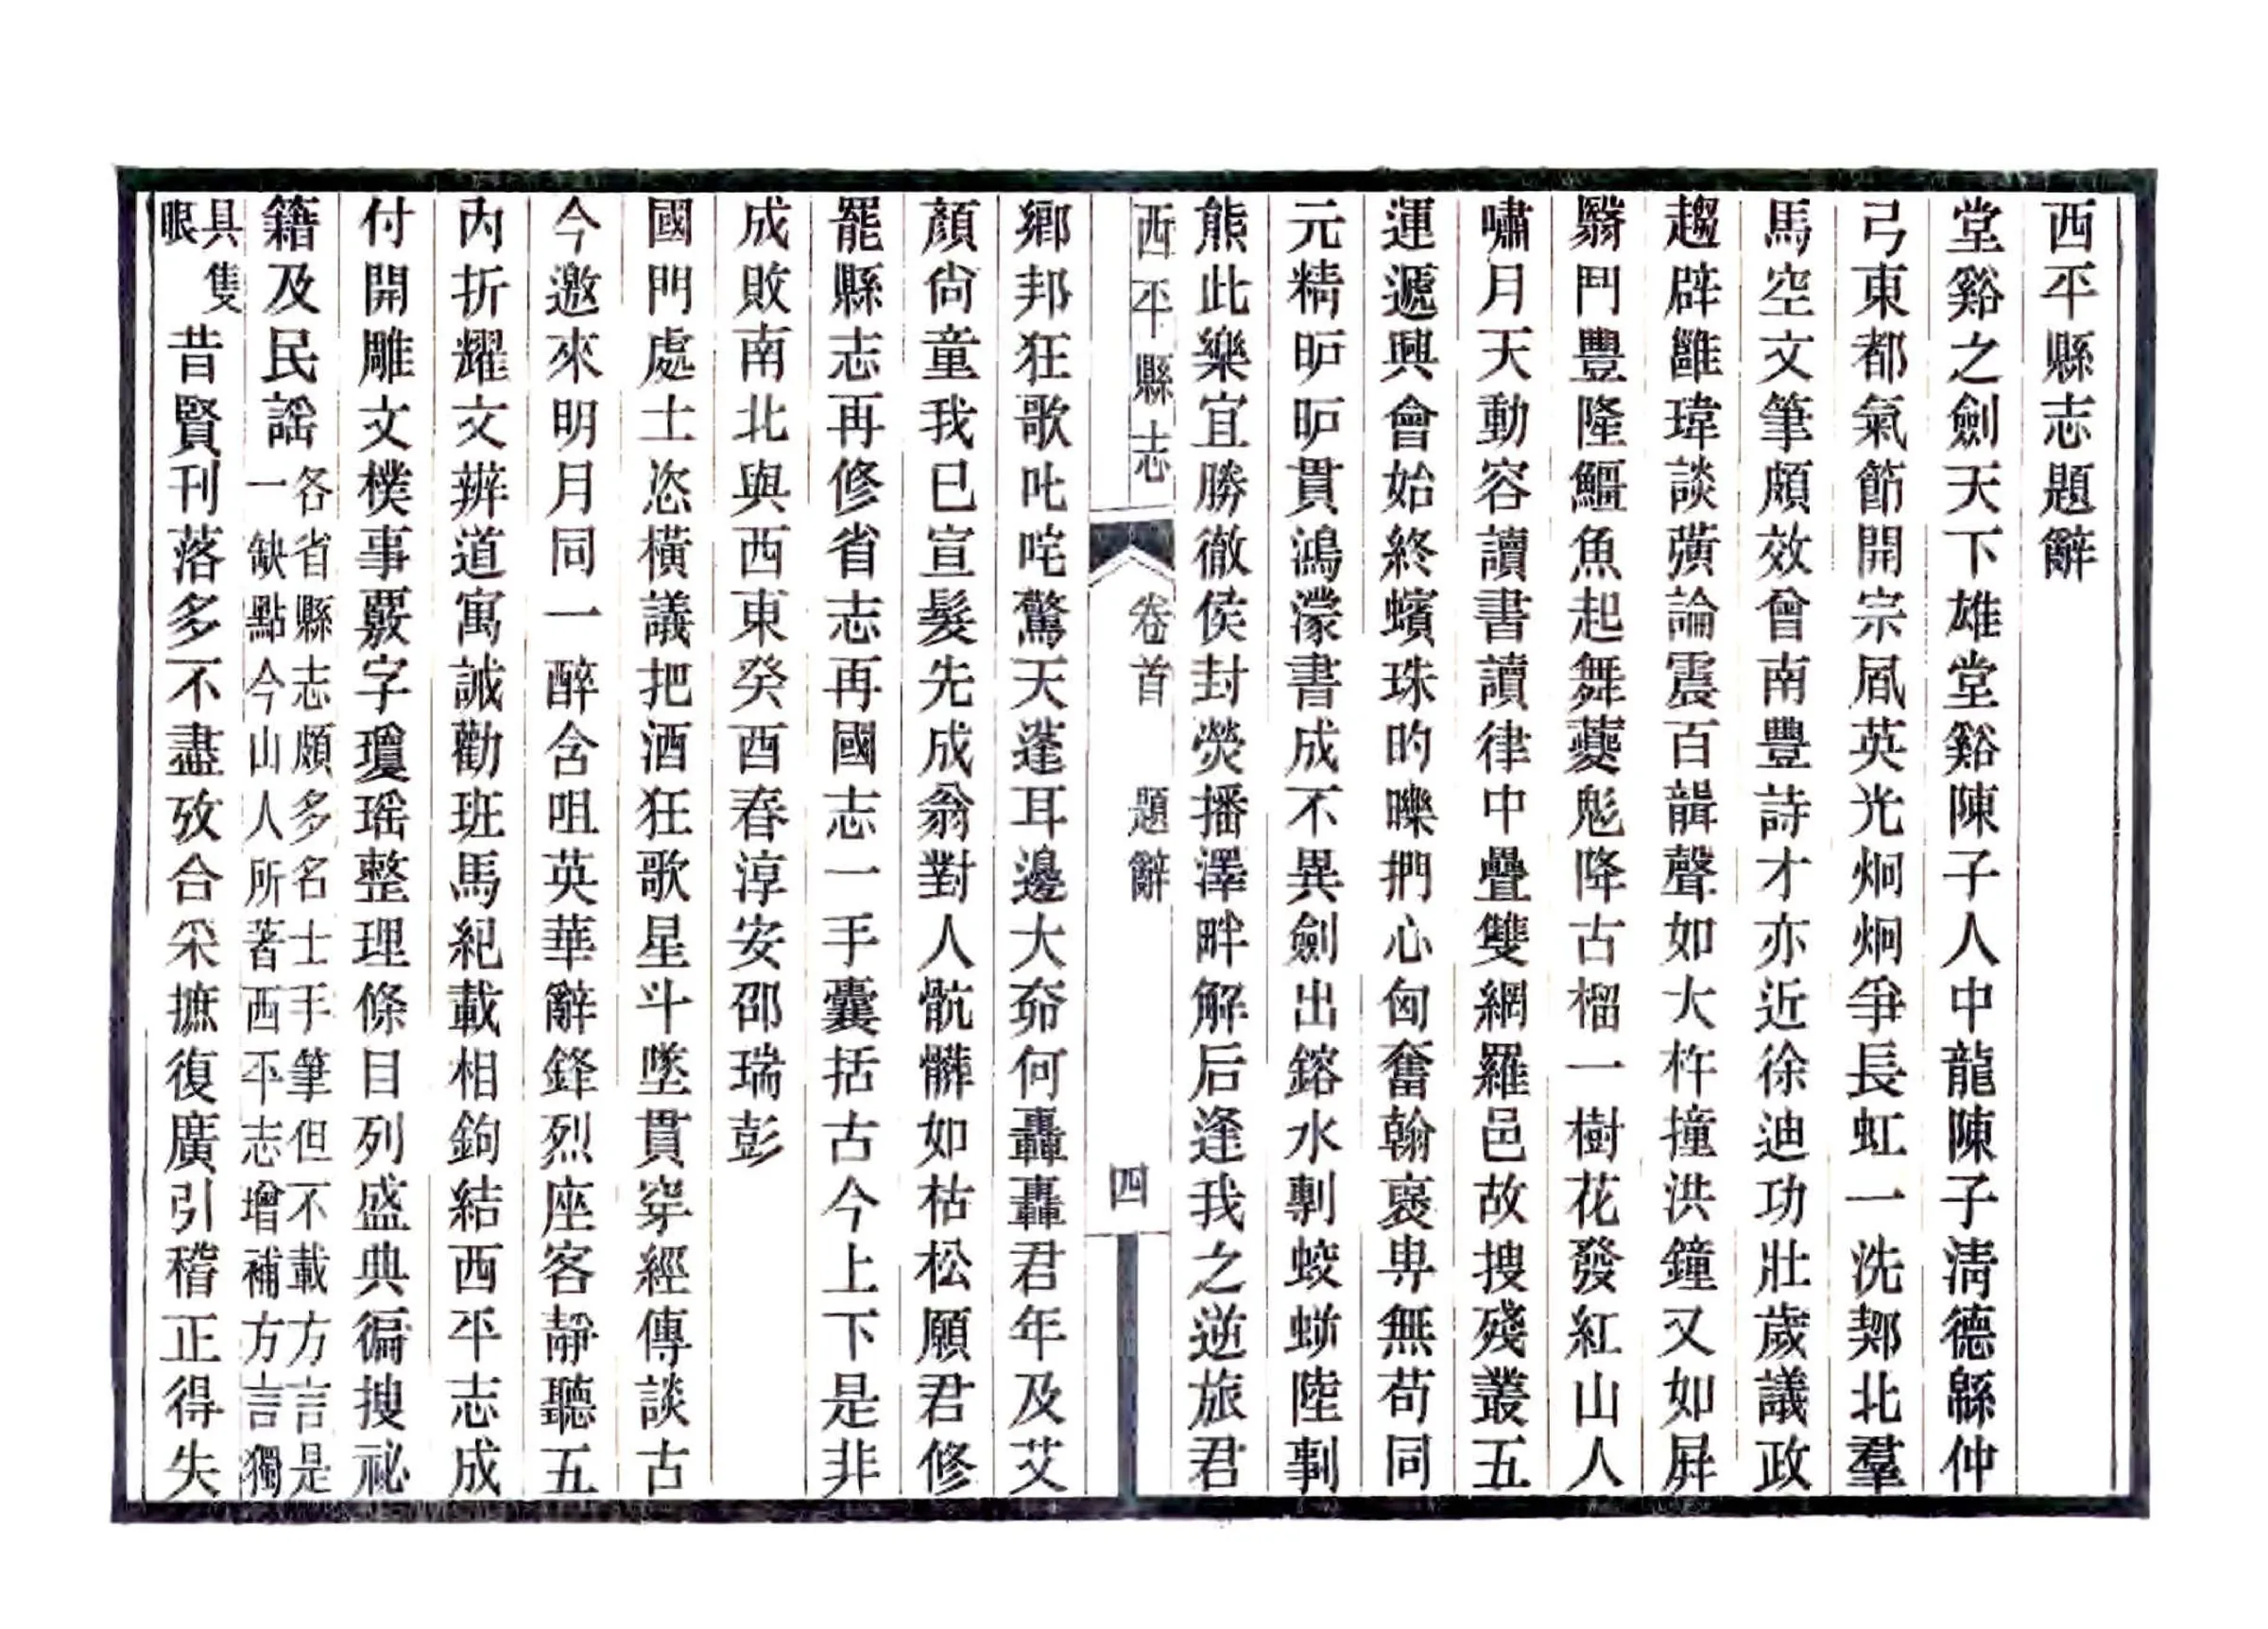 西平縣志題辭
堂谿之劍天下雄堂谿陳子人中龍陳子淸德緜仲
弓東都氣節開宗風英光炯炯爭長虹一洗鄴北羣
馬空文筆頗效曾南豐詩才亦近徐迪功壯歲議政
趨辟雝瑋談議論震百韻聲如大杵撞洪鐘又如屛
翳鬥豐隆鱷魚起舞夔鬽降古榴一樹花發紅山人
嘯月天動容讀書讀律中疊雙網羅邑故捜殘叢五
運遞興會始終蠙珠旳皪捫心匈奮翰褒卑無苟同
元精昈昈貫鴻濛書成不異劍出鎔水剸蛟蛖陸剸
熊此樂宜勝徹侯封熒播澤畔解后逢我之逆旅君
西平縣志 卷首 題辭 四
鄕邦狂歌叱咤驚天蓬耳邊大奅何轟轟君年及艾
顏尙童我已宣髮先成翁對人骯髒如枯松願君修
罷縣志再修省志再國志一手囊括古今上下是非
成敗南北與西東癸酉春淳安邵瑞彭
國門處士恣橫議把酒狂歌星斗墜貫穿經傳談古
今邀來明月同一醉含咀英華辭鋒烈座客靜聽五
內折耀文辨道寓誡勸班馬紀載相鉤結西平志成
付開雕文樸事覈字瓊瑤整理條目列盛典徧捜祕
籍及民謠各省縣志頗多名士手筆但不載方言是一缺點今山人所著西平志增補方言獨
具隻眼昔賢刊落多不盡攷合采摭復廣引稽正得失